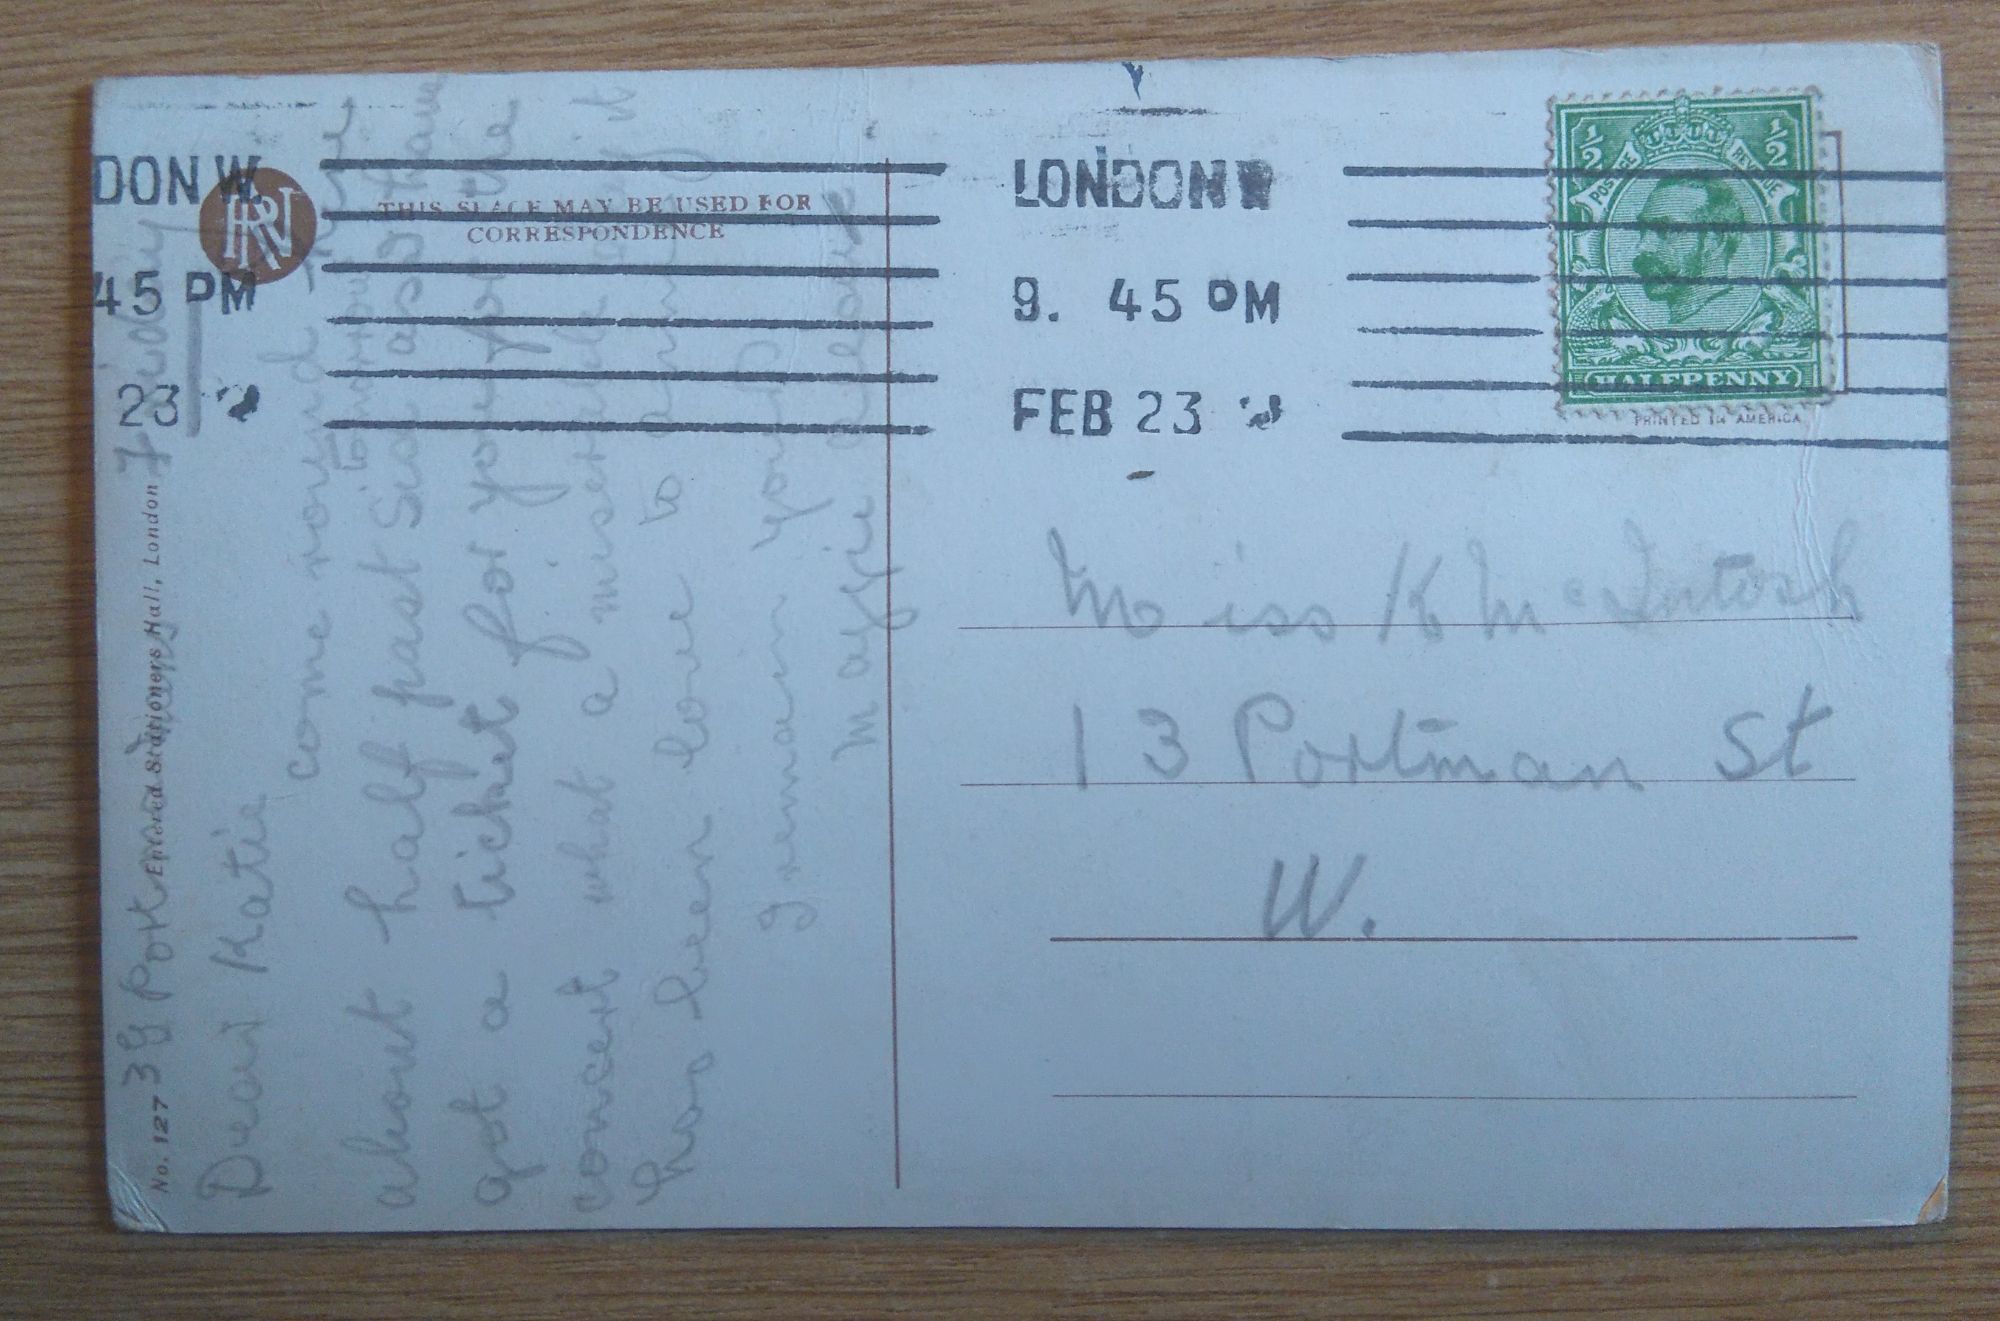 DON W.
45 PM
23
RN
THIS SPACE MAY BE USED FOR
CORRESPONDENCE
LONDON W
9. 45 PM
FEB 23
½ ½
POSTAGE REVENUE
HALFPENNY
PRINTED IN AMERICA
No. 127 Entered Stationers Hall, London
Friday
Dear Katie
come round
tomorrow
about half past six as I have
got a ticket for you for the
concert what a miserable
has been love to
I remain yours
Miss K McIntosh
13 Portman St
W.